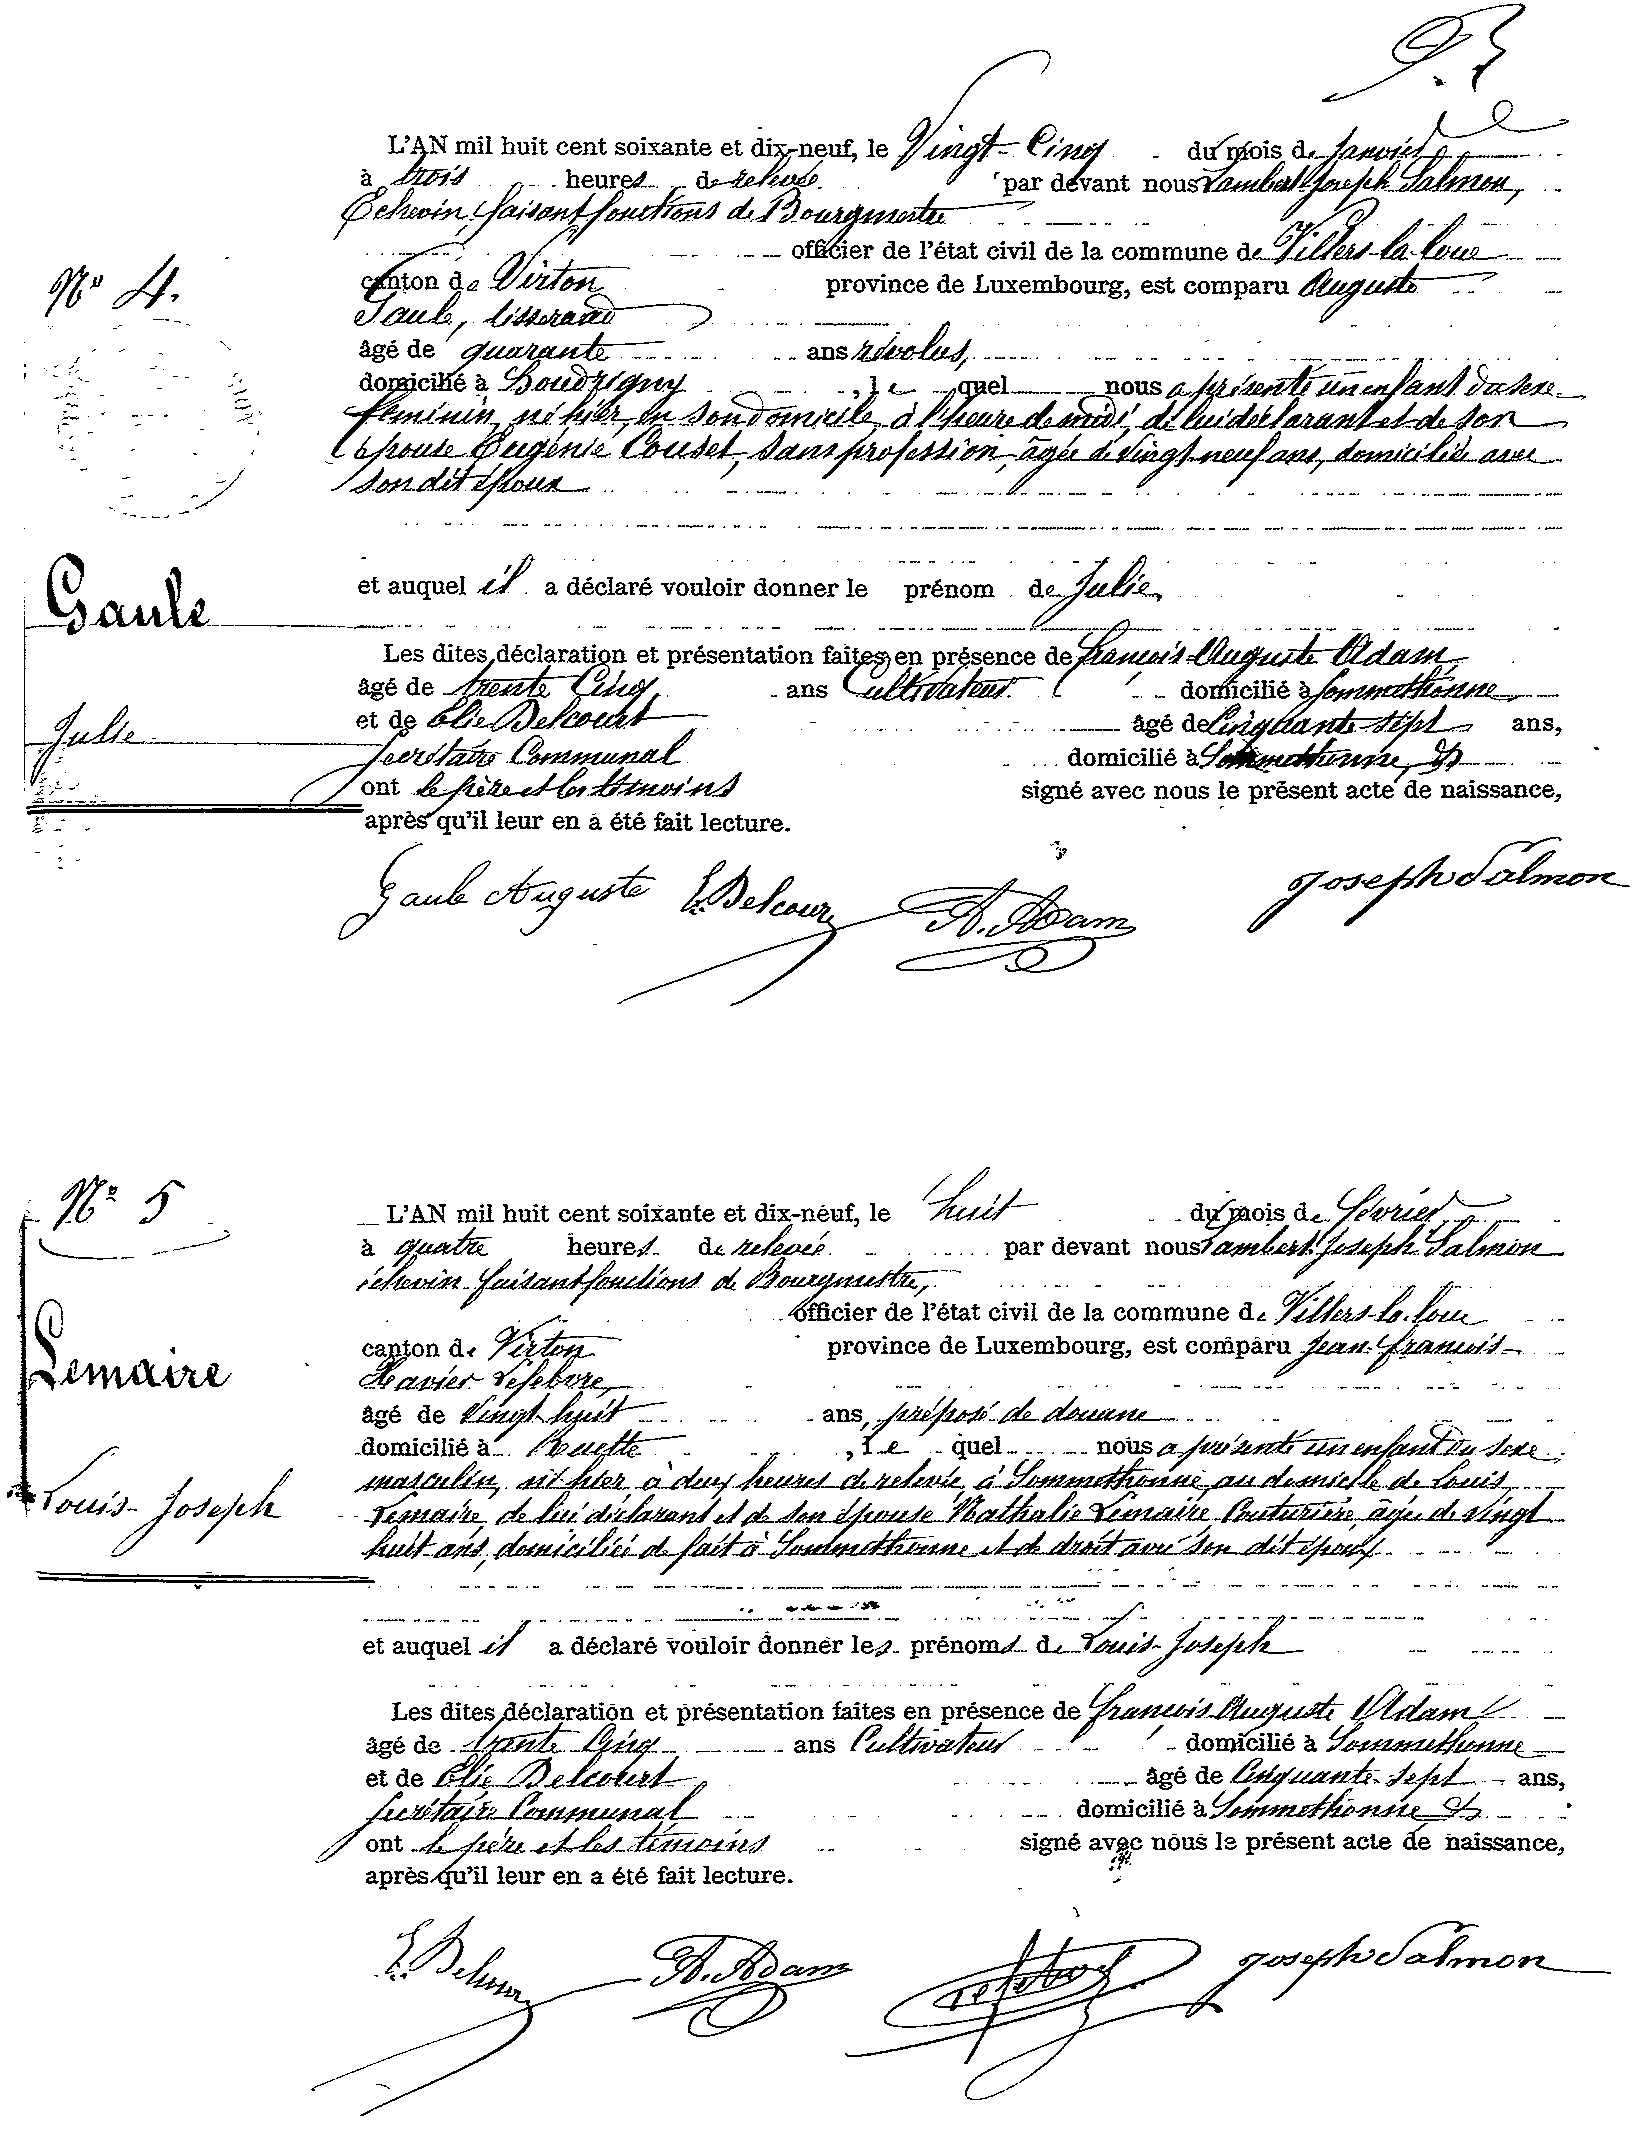 L'AN mil huit cent soixante et dix-neuf, le Vingt-Cinq du mois de Janvier
à trois heures de relevée par devant nous Lambert Joseph Salmon,
Echevin, faisant fonctions de Bourgmestre
officier de l'état civil de la commune de Villers-la-loue
N° 4.
canton de Virton province de Luxembourg, est comparu Auguste
Gaule, tisserand
âgé de quarante ans révolus,
domicilié à Houdrigny, le quel nous a présenté un enfant du sexe
féminin, né hier, en son domicile, à l'heure de midi, de lui déclarant et de son
épouse Eugénie Couset, sans profession, âgée de vingt-neuf ans, domiciliée avec
son dit époux
et auquel il a déclaré vouloir donner le prénom de Julie,
Gaule
Les dites déclaration et présentation faites en présence de François-Auguste Adam,
âgé de trente Cinq ans Cultivateur domicilié à Sommethonne,
et de Elie Delcourt âgé de Cinquante-sept ans,
Julie
Secrétaire Communal domicilié à Sommethonne, &
ont le père et les témoins signé avec nous le présent acte de naissance,
après qu'il leur en a été fait lecture.
Gaule Auguste E. Delcour A. Adam Joseph Salmon
N° 5
L'AN mil huit cent soixante et dix-neuf, le huit du mois de Février
à quatre heures de relevée par devant nous Lambert Joseph Salmon
échevin faisant fonctions de Bourgmestre,
officier de l'état civil de la commune de Villers-la-loue
canton de Virton province de Luxembourg, est comparu Jean-François-
Lemaire
Xavier Lefebvre,
âgé de vingt-huit ans, préposé de douane
domicilié à Ruette, le quel nous a présenté un enfant du sexe
masculin, né hier, à deux heures de relevée, à Sommethonne, au domicile de Louis
Louis-Joseph
Lemaire, de lui déclarant et de son épouse Nathalie Lemaire Couturière, âgée de vingt
huit ans, domiciliée de fait à Sommethonne et de droit avec son dit époux
et auquel il a déclaré vouloir donner les prénoms de Louis-Joseph
Les dites déclaration et présentation faites en présence de François-Auguste Adam
âgé de trente Cinq ans Cultivateur domicilié à Sommethonne
et de Elie Delcourt âgé de Cinquante-sept ans,
Secrétaire Communal domicilié à Sommethonne &
ont le père et les témoins signé avec nous le présent acte de naissance,
après qu'il leur en a été fait lecture.
E. Delcour A. Adam Lefebvre Joseph Salmon